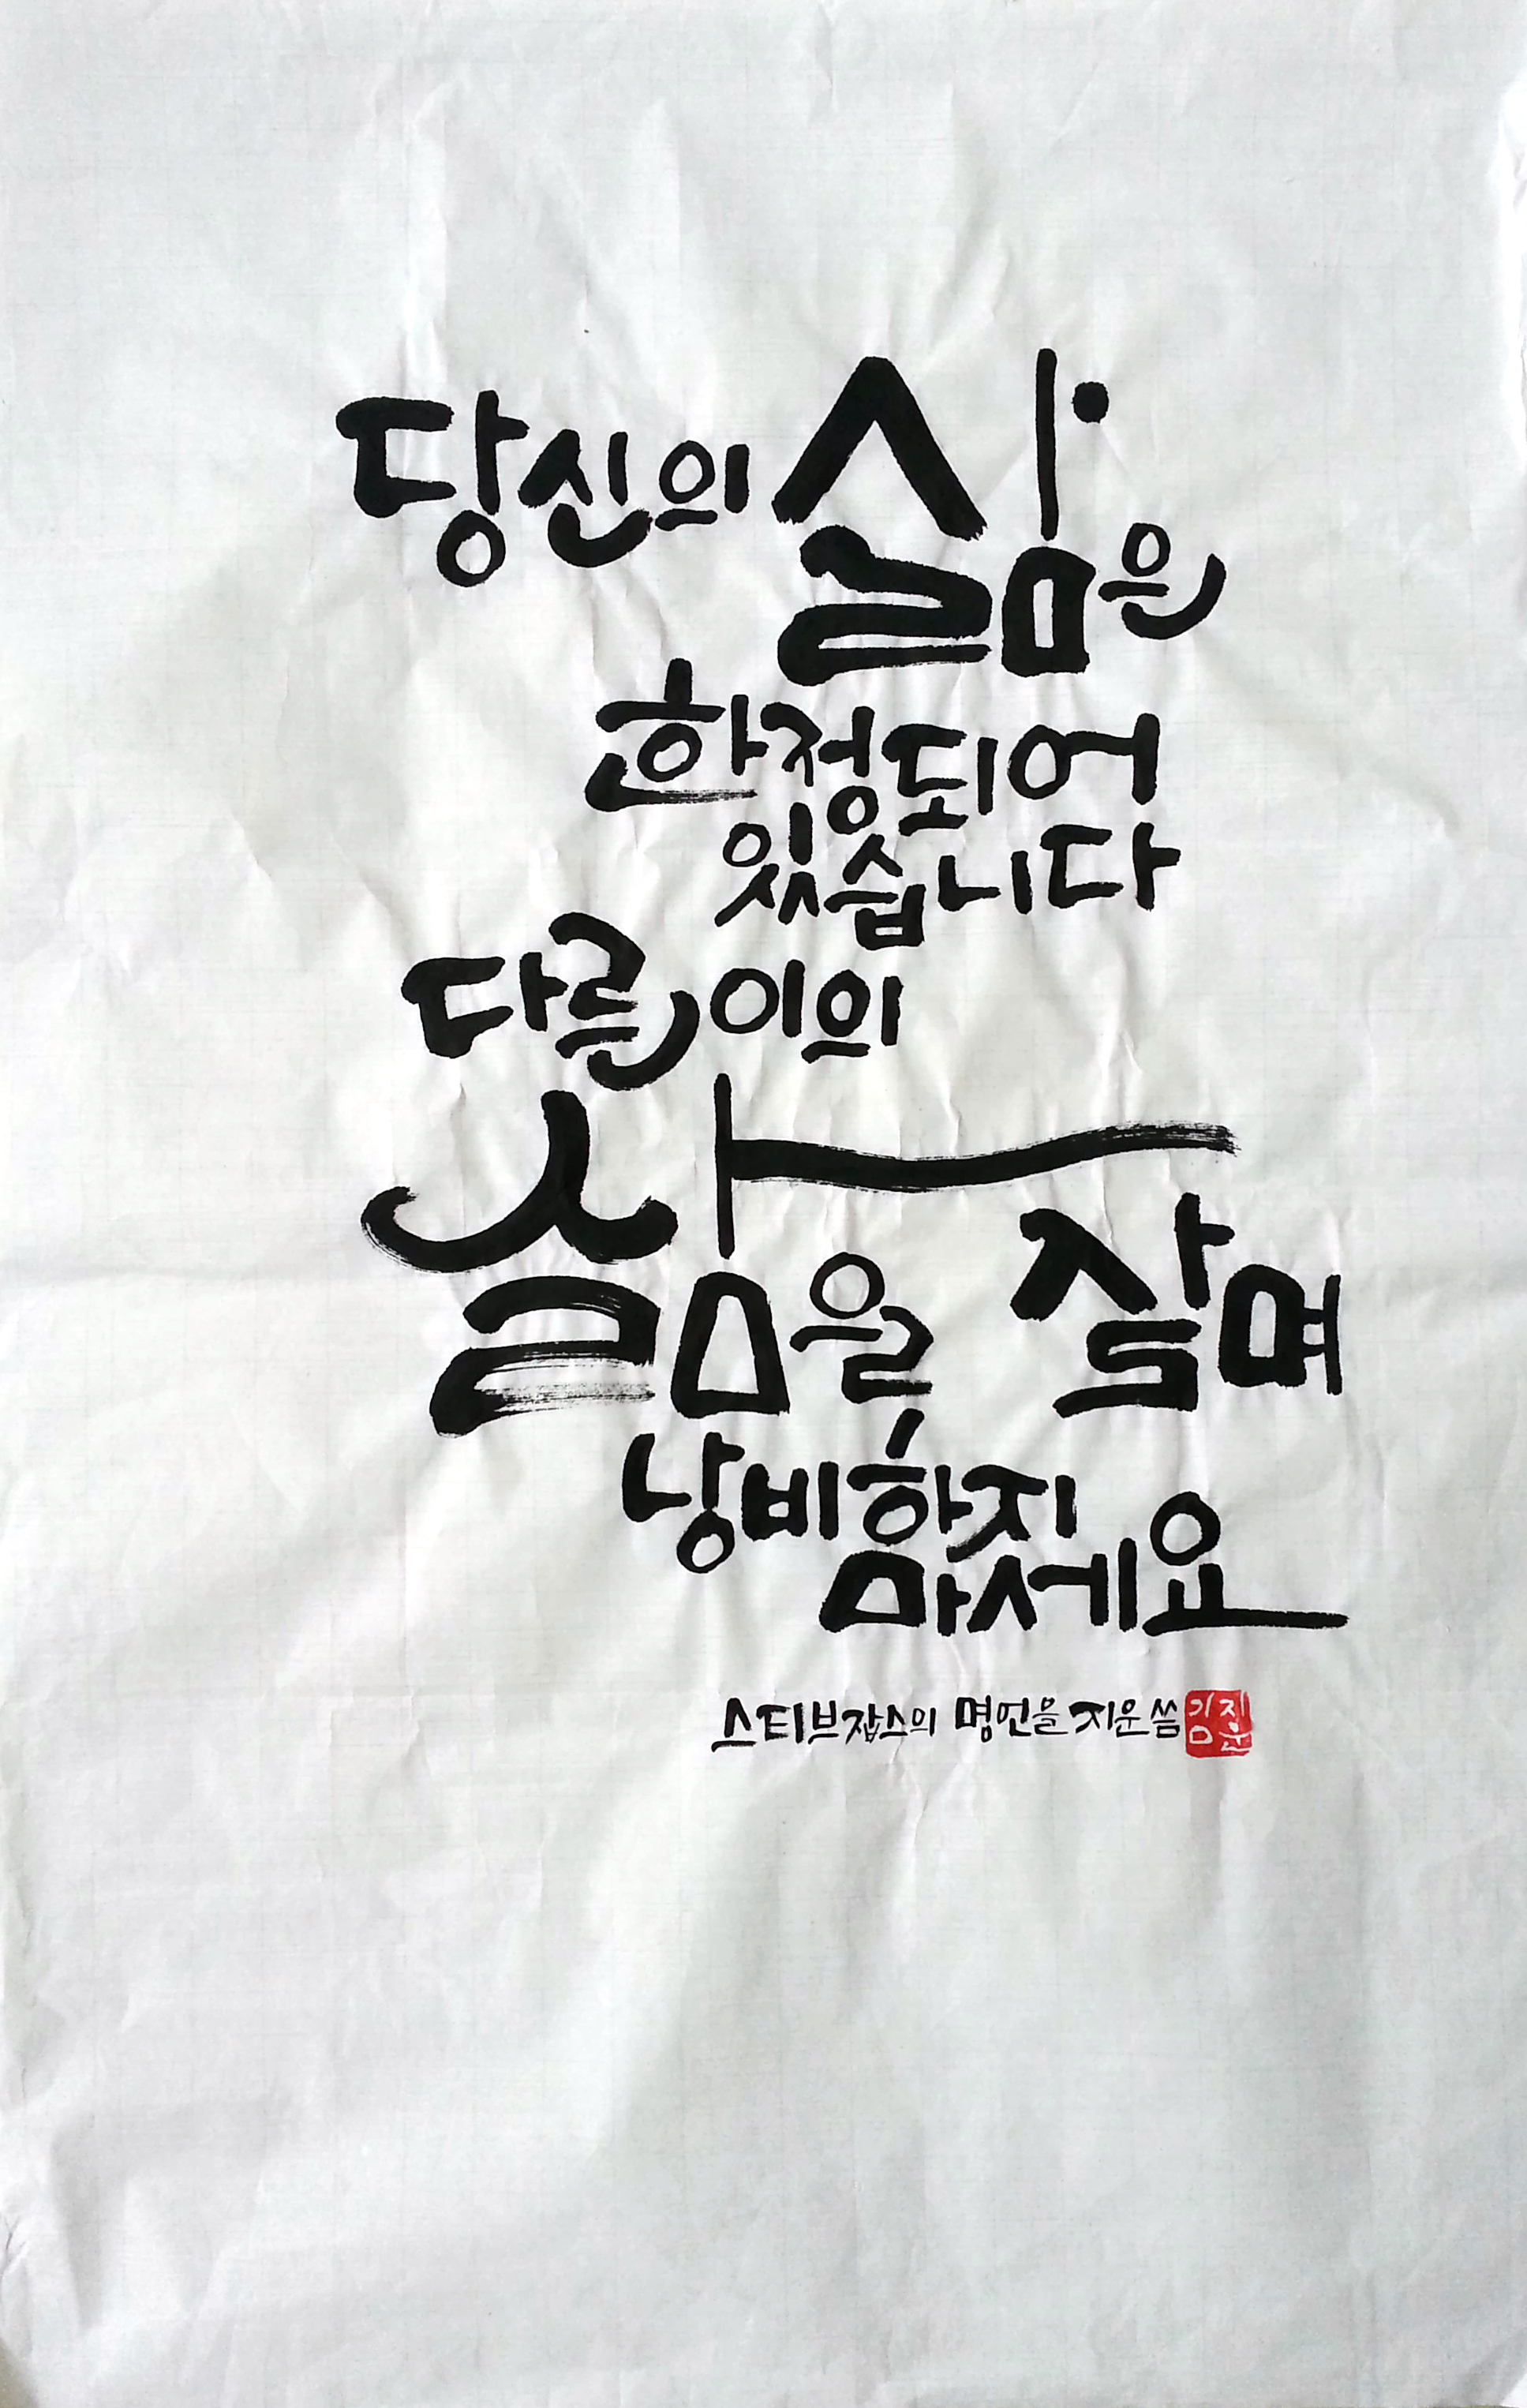 당신의 삶은
한정되어
있습니다
다른이의
삶을 살며
낭비하지
마세요
스티브잡스의 명언을 지운 씀 김지운